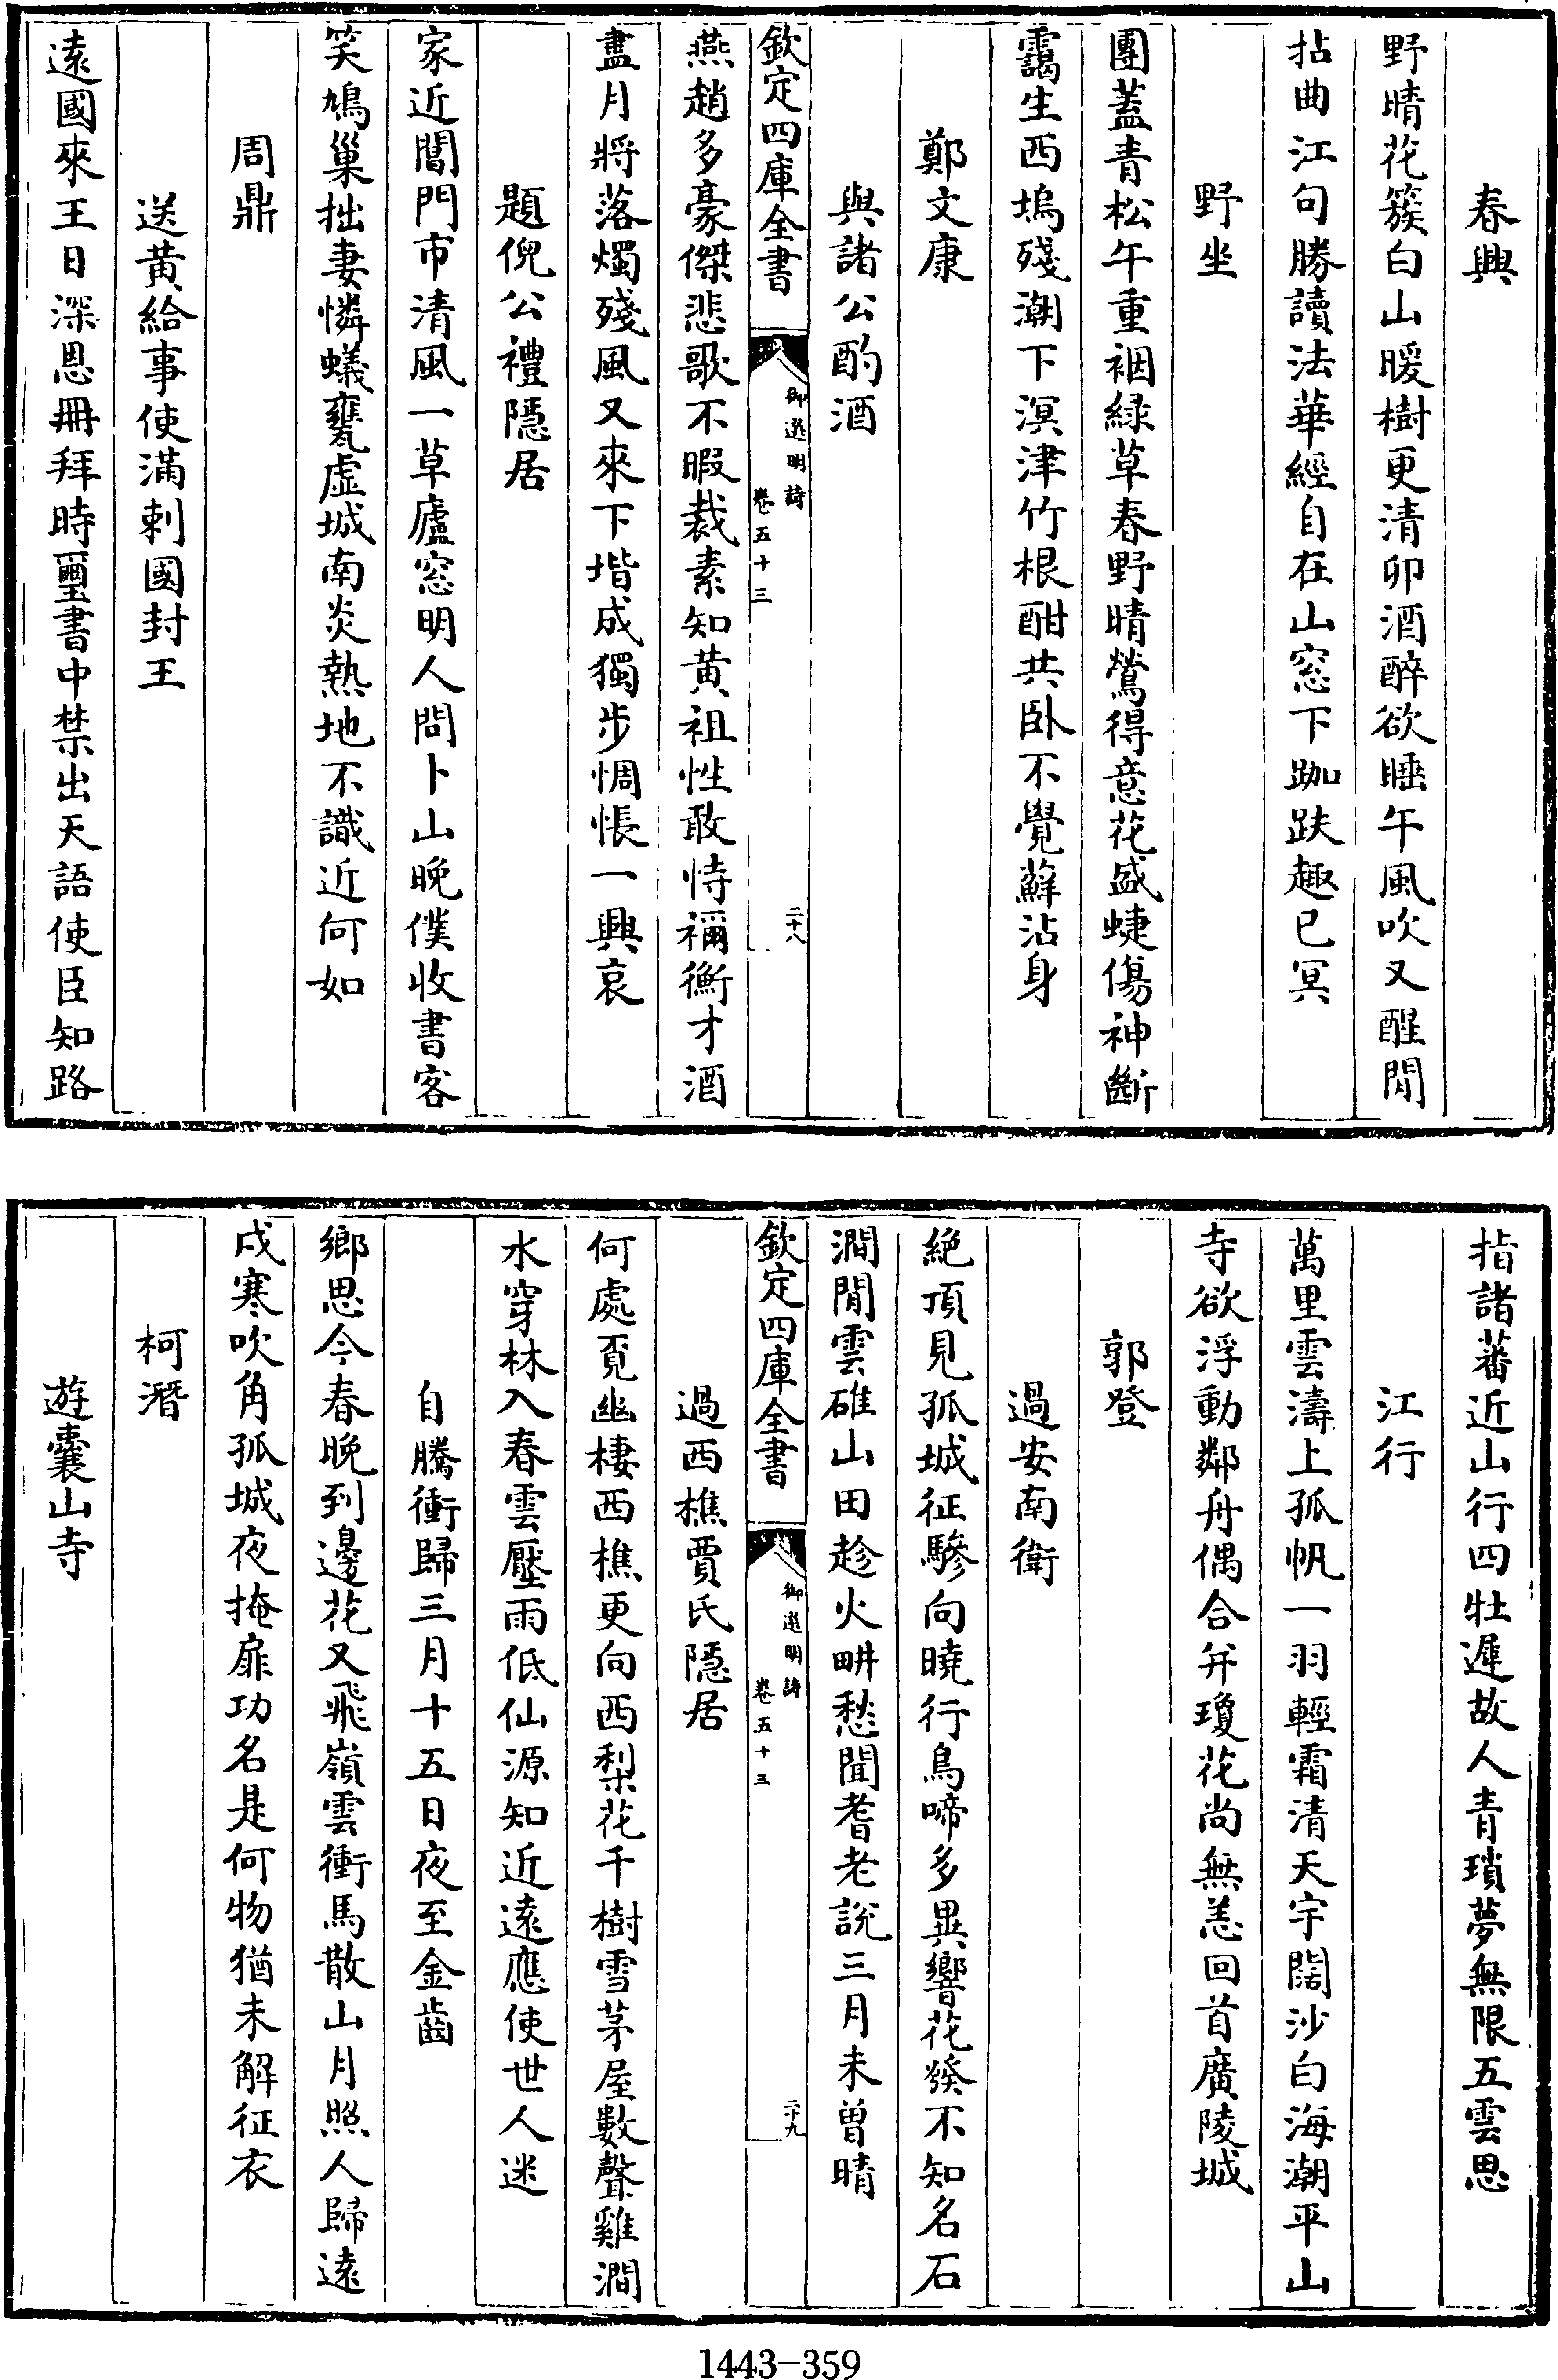 春興
野晴花簇白山暖樹更清卯酒醉欲睡午風吹又醒閒
拈曲江句勝讀法華經自在山窓下跏趺趣已冥
野坐
團蓋青松午重裀緑草春野晴鶯得意花盛蜨傷神斷
靄生西塢殘潮下溟津竹根酣共卧不覺蘚沾身
鄭文康
與諸公酌酒
欽定四庫全書
御選明詩
卷五十三
二十八
燕趙多豪傑悲歌不暇裁素知黄祖性敢恃禰衡才酒
盡月將落燭殘風又來下堦成獨步惆悵一興哀
題倪公禮隱居
家近閶門市清風一草廬窓明人問卜山晚僕收書客
笑鳩巢拙妻憐蟻甕虚城南炎熱地不識近何如
周鼎
送黄給事使滿剌國封王
遠國來王日深恩冊拜時璽書中禁出天語使臣知路
指諸蕃近山行四牡遲故人青瑣夢無限五雲思
江行
萬里雲濤上孤帆一羽輕霜清天宇闊沙白海潮平山
寺欲浮動鄰舟偶合并瓊花尚無恙回首廣陵城
郭登
過安南衛
絶頂見孤城征驂向曉行鳥啼多異響花發不知名石
澗閒雲碓山田趁火畊愁聞耆老說三月未曾晴
欽定四庫全書
御選明詩
卷五十三
二十九
過西樵賈氏隱居
何處覔幽棲西樵更向西梨花千樹雪茅屋數聲雞澗
水穿林入春雲壓雨低仙源知近遠應使世人迷
自騰衝歸三月十五日夜至金齒
鄉思今春晚到邊花又飛嶺雲衝馬散山月照人歸遠
戍寒吹角孤城夜掩扉功名是何物猶未解征衣
柯潛
遊囊山寺
1443-359